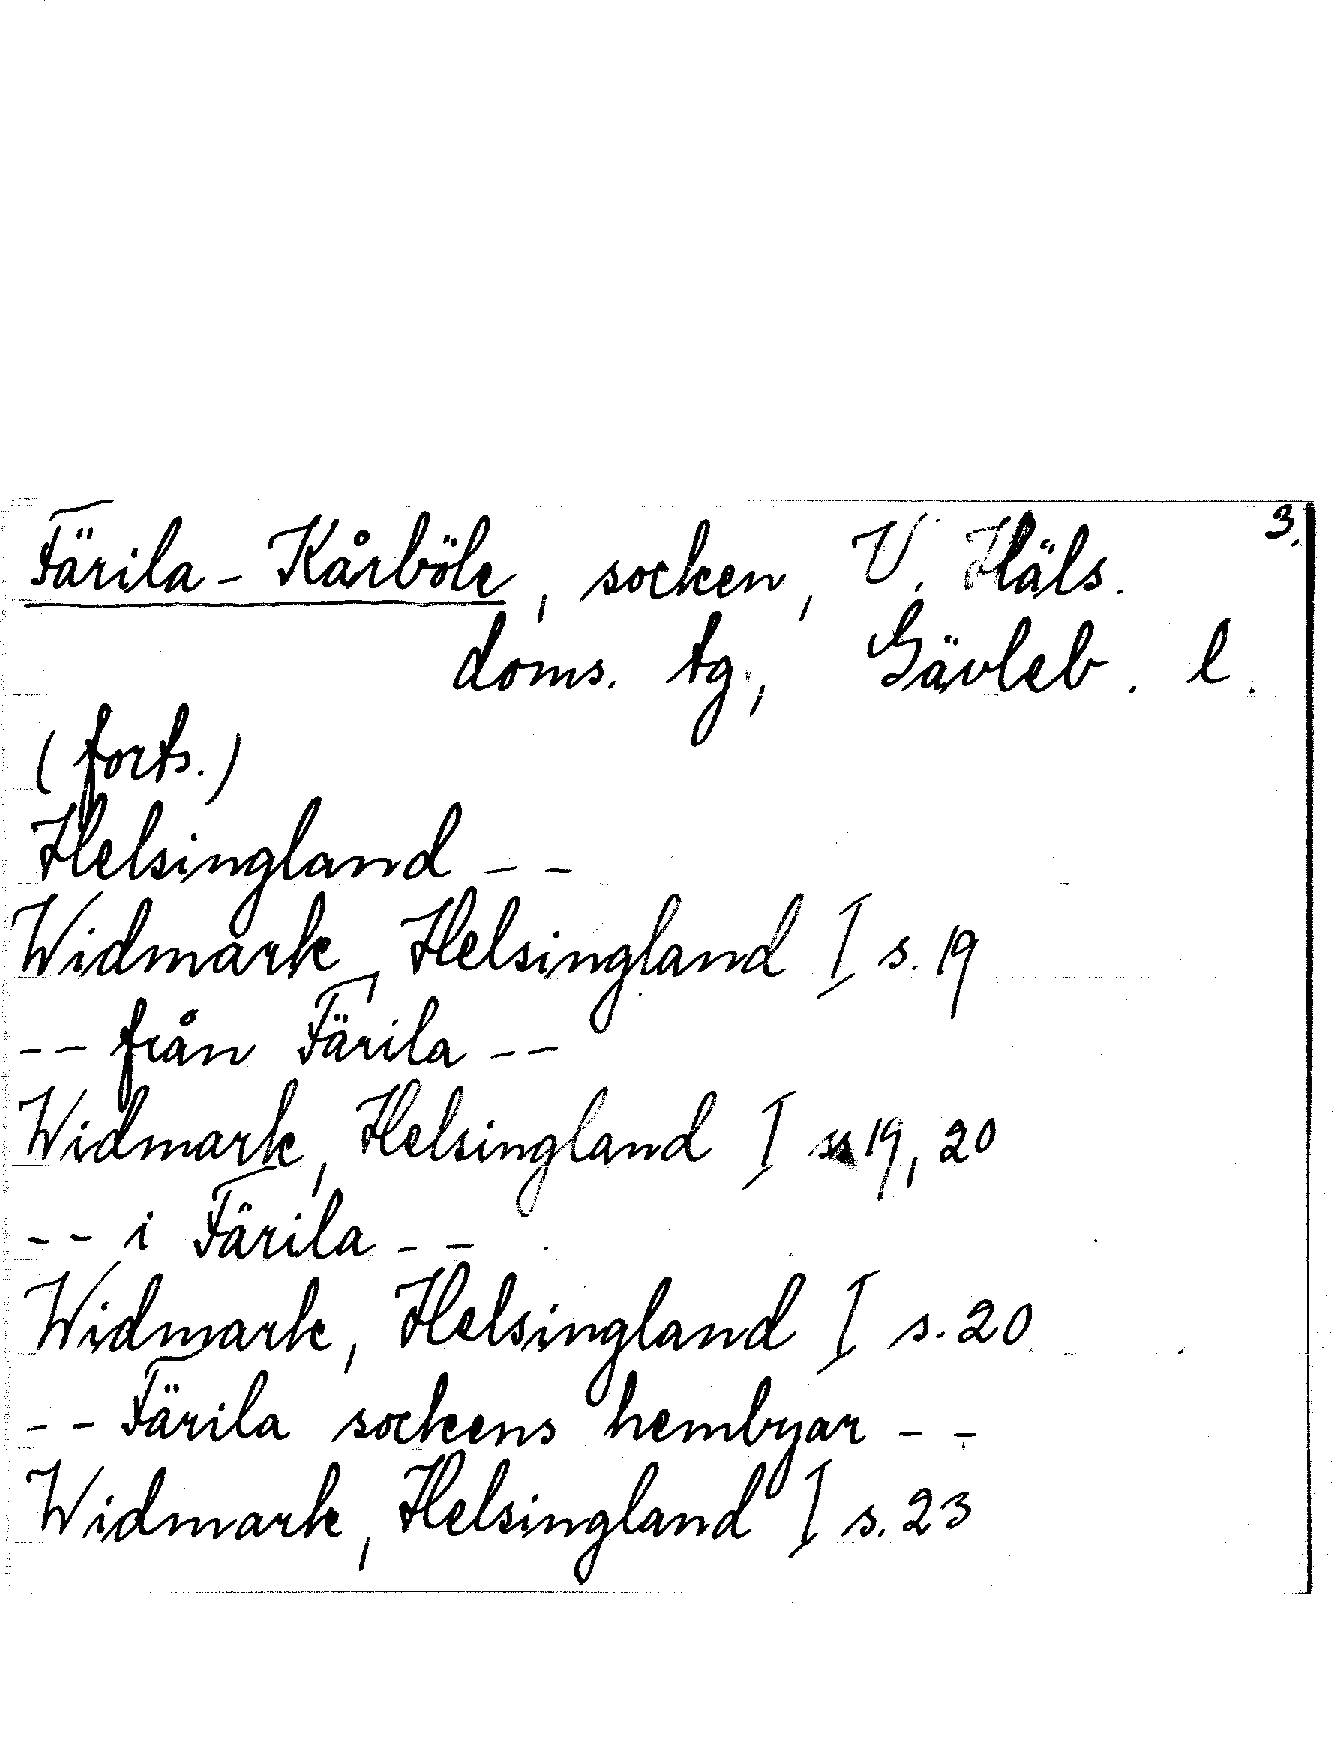 3.
Färila - Kårböle, socken, V. Häls.
doms. tg., Gävleb. l.
(forts.)
Helsingland - -
Widmark, Helsingland I s. 19
- - från Färila - -
Widmark, Helsingland I ss 19, 20
- - i Färila - -
Widmark, Helsingland I s. 20
- - Färila sockens hembyar - -
Widmark, Helsingland I s. 23